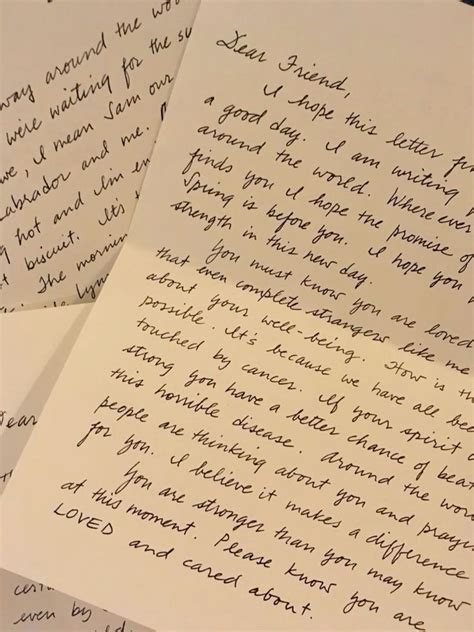 way around the wo
were waiting for the su
we, I mean Sam our
abrador and me.
g hot and I'm en
t biscuit. It's
The mornin
Dear Friend,
I hope this letter fin
a good day. I am writing
around the world. Where ever
finds you I hope the promise of
Spring is before you. I hope you
strength in this new day.
You must know you are loved
that even complete strangers like me
about your well-being. How is th
possible. It's because we have all bee
touched by cancer. If your spirit
strong you have a better chance of beat
this horrible disease. Around the wor
people are thinking about you and prayi
for you. I believe it makes a difference
You are stronger than you may know
at this moment. Please know you are
LOVED and cared about.
ear
certi
even by